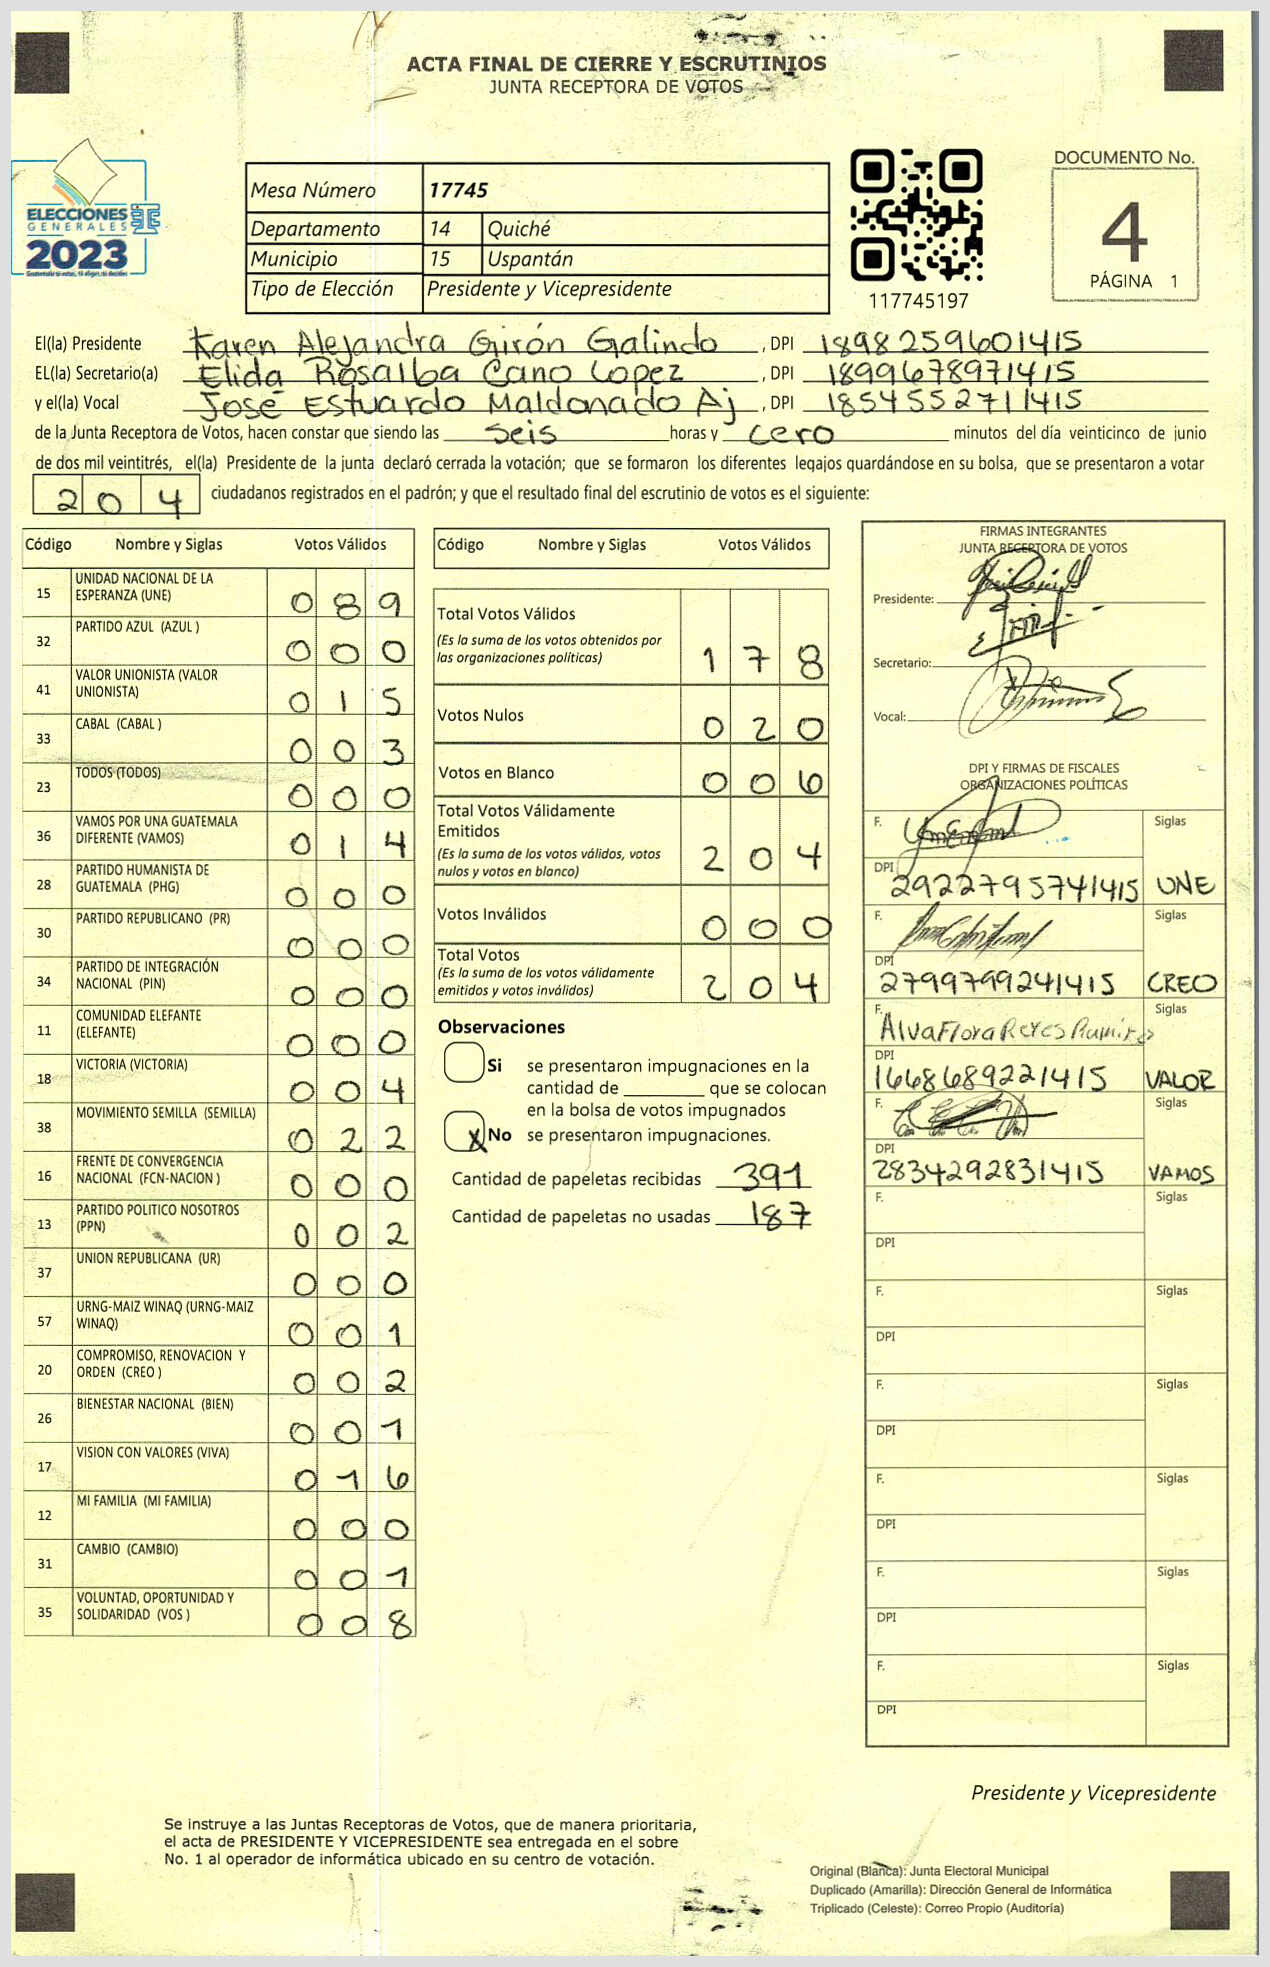 ACTA FINAL DE CIERRE Y ESCRUTINIOS
JUNTA RECEPTORA DE VOTOS
ELECCIONES
GENERALES
2023
Mesa Número 17745
Departamento 14 Quiché
Municipio 15 Uspantán
Tipo de Elección Presidente y Vicepresidente
117745197
DOCUMENTO No.
4
PÁGINA 1
El(la) Presidente Karen Alejandra Girón Galindo, DPI 1898259601415
EL(la) Secretario(a) Elida Rosalba Cano Lopez, DPI 1899678971415
y el(la) Vocal José Estuardo Maldonado Aj, DPI 1854552711415
de la Junta Receptora de Votos, hacen constar que siendo las seis horas y cero minutos del día veinticinco de junio
de dos mil veintitrés, el(la) Presidente de la junta declaró cerrada la votación; que se formaron los diferentes legajos guardándose en su bolsa, que se presentaron a votar
204 ciudadanos registrados en el padrón; y que el resultado final del escrutinio de votos es el siguiente:
Código Nombre y Siglas Votos Válidos
15 UNIDAD NACIONAL DE LA
ESPERANZA (UNE) 089
32 PARTIDO AZUL (AZUL ) 000
41 VALOR UNIONISTA (VALOR
UNIONISTA) 015
33 CABAL (CABAL ) 003
23 TODOS (TODOS) 000
36 VAMOS POR UNA GUATEMALA
DIFERENTE (VAMOS) 014
28 PARTIDO HUMANISTA DE
GUATEMALA (PHG) 000
30 PARTIDO REPUBLICANO (PR) 000
34 PARTIDO DE INTEGRACIÓN
NACIONAL (PIN) 000
11 COMUNIDAD ELEFANTE
(ELEFANTE) 000
18 VICTORIA (VICTORIA) 004
38 MOVIMIENTO SEMILLA (SEMILLA) 022
16 FRENTE DE CONVERGENCIA
NACIONAL (FCN-NACION ) 000
13 PARTIDO POLITICO NOSOTROS
(PPN) 002
37 UNION REPUBLICANA (UR) 000
57 URNG-MAIZ WINAQ (URNG-MAIZ
WINAQ) 001
20 COMPROMISO, RENOVACION Y
ORDEN (CREO ) 002
26 BIENESTAR NACIONAL (BIEN) 001
17 VISION CON VALORES (VIVA) 016
12 MI FAMILIA (MI FAMILIA) 000
31 CAMBIO (CAMBIO) 001
35 VOLUNTAD, OPORTUNIDAD Y
SOLIDARIDAD (VOS ) 008
Código Nombre y Siglas Votos Válidos
Total Votos Válidos
(Es la suma de los votos obtenidos por
las organizaciones políticas) 178
Votos Nulos 020
Votos en Blanco 006
Total Votos Válidamente
Emitidos
(Es la suma de los votos válidos, votos
nulos y votos en blanco) 204
Votos Inválidos 000
Total Votos
(Es la suma de los votos válidamente
emitidos y votos inválidos) 204
Observaciones
Si se presentaron impugnaciones en la
cantidad de ________ que se colocan
en la bolsa de votos impugnados
X No se presentaron impugnaciones.
Cantidad de papeletas recibidas 391
Cantidad de papeletas no usadas 187
FIRMAS INTEGRANTES
JUNTA RECEPTORA DE VOTOS
Presidente:
Secretario:
Vocal:
DPI Y FIRMAS DE FISCALES
ORGANIZACIONES POLÍTICAS
F. Siglas
DPI 2922795741415 UNE
F. Siglas
DPI 2799799241415 CREO
F. Alva Flora Reyes Ramirez Siglas
DPI 1668689221415 VALOR
F. Siglas
DPI 2834292831415 VAMOS
F. Siglas
DPI
F. Siglas
DPI
F. Siglas
DPI
F. Siglas
DPI
F. Siglas
DPI
F. Siglas
DPI
Presidente y Vicepresidente
Se instruye a las Juntas Receptoras de Votos, que de manera prioritaria,
el acta de PRESIDENTE Y VICEPRESIDENTE sea entregada en el sobre
No. 1 al operador de informática ubicado en su centro de votación.
Original (Blanca): Junta Electoral Municipal
Duplicado (Amarilla): Dirección General de Informática
Triplicado (Celeste): Correo Propio (Auditoría)